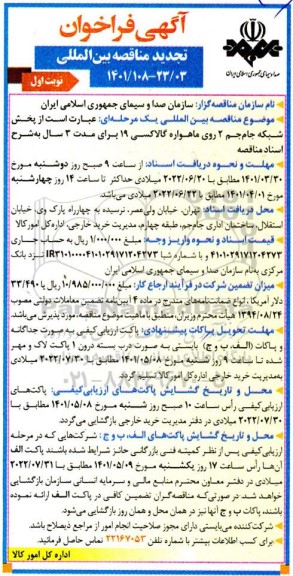 آگهی فراخوان
تجدید مناقصه بین‌المللی
۱۴۰۱/۱۰۸-۲۳/۰۳
نوبت اول
صدا و سیمای جمهوری اسلامی ایران
نام سازمان مناقصه‌گزار: سازمان صدا و سیمای جمهوری اسلامی ایران
موضوع مناقصه بین‌المللی یک مرحله‌ای: عبارت است از پخش
شبکه جام‌جم ۲ روی ماهواره گالاکسی ۱۹ برای مدت ۳ سال به‌شرح
اسناد مناقصه
مهلت و نحوه دریافت اسناد: از ساعت ۹ صبح روز دوشنبه مورخ
۱۴۰۱/۰۳/۳۰ مطابق با ۲۰۲۲/۰۶/۲۰ میلادی حداکثر تا ساعت ۱۴ روز چهارشنبه
مورخ ۱۴۰۱/۰۴/۰۱ مطابق با ۲۰۲۲/۰۶/۲۲ میلادی می‌باشد.
محل دریافت اسناد: تهران، خیابان ولی‌عصر، نرسیده به چهارراه پارک وی، خیابان
استقلال، ساختمان اداری جام‌جم، طبقه چهارم، مدیریت خرید خارجی، اداره کل امور کالا
قیمت اسناد و نحوه واریز وجه: مبلغ ۱/۰۰۰/۰۰۰ ریال به حساب جاری
۴۱۰۱۰۲۹۱۷۱۲۰۴۲۷۳ و با شماره شبا IR۳۱۰۱۰۰۰۰۴۱۰۱۰۲۹۱۷۱۲۰۴۲۷۳ نزد بانک
مرکزی به‌نام سازمان صدا و سیمای جمهوری اسلامی ایران
میزان تضمین شرکت در فرآیند ارجاع کار: مبلغ ۱۰/۹۸۵/۰۰۰/۰۰۰ ریال یا ۳۳/۴۹۰
دلار آمریکا، انواع ضمانت‌نامه‌های مندرج در ماده ۴ آیین‌نامه تضمین معاملات دولتی مصوب
۱۳۹۴/۰۸/۲۴ هیأت محترم وزیران، منطبق با ماهیت موضوع مناقصه، مورد پذیرش می‌باشد.
مهلت تحویل پاکات پیشنهادی: پاکت ارزیابی کیفی به صورت جداگانه
و پاکات (الف، ب و ج) بایستی به صورت دربسته درون ۱ پاکت لاک و مهر
شده تا ساعت ۹ روز شنبه مورخ ۱۴۰۱/۰۵/۰۸ مطابق با ۲۰۲۲/۰۷/۳۰ میلادی
به مدیریت خرید خارجی اداره کل امور کالا تسلیم گردد.
محل و تاریخ گشایش پاکت‌های ارزیابی کیفی: پاکت‌های
ارزیابی کیفی رأس ساعت ۱۰ صبح روز شنبه مورخ ۱۴۰۱/۰۵/۰۸ مطابق با
۲۰۲۲/۰۷/۳۰ میلادی در دفتر مدیریت خرید خارجی بازگشایی می‌گردد.
محل و تاریخ گشایش پاکت‌های الف، ب و ج: شرکت‌هایی که در مرحله
ارزیابی کیفی پس از نظر کمیته فنی بازرگانی حائز شرایط شده باشند پاکت الف
آن‌ها رأس ساعت ۱۷ روز یکشنبه مورخ ۱۴۰۱/۰۵/۰۹ مطابق با ۲۰۲۲/۰۷/۳۱
میلادی در دفتر معاون محترم منابع مالی و سرمایه انسانی سازمان بازگشایی
خواهد شد، در صورتی‌که مناقصه‌گران تضمین کافی در پاکت الف ارائه نموده
باشند، پاکات ب و ج آنها نیز در همان محل و همان روز بازگشایی می‌شود.
شرکت‌کننده می‌بایستی دارای مجوز صلاحیت انجام امور از مراجع ذیصلاح باشد.
برای کسب اطلاعات بیشتر با شماره تلفن ۲۲۱۶۷۰۵۳ تماس حاصل فرمائید.
اداره کل امور کالا